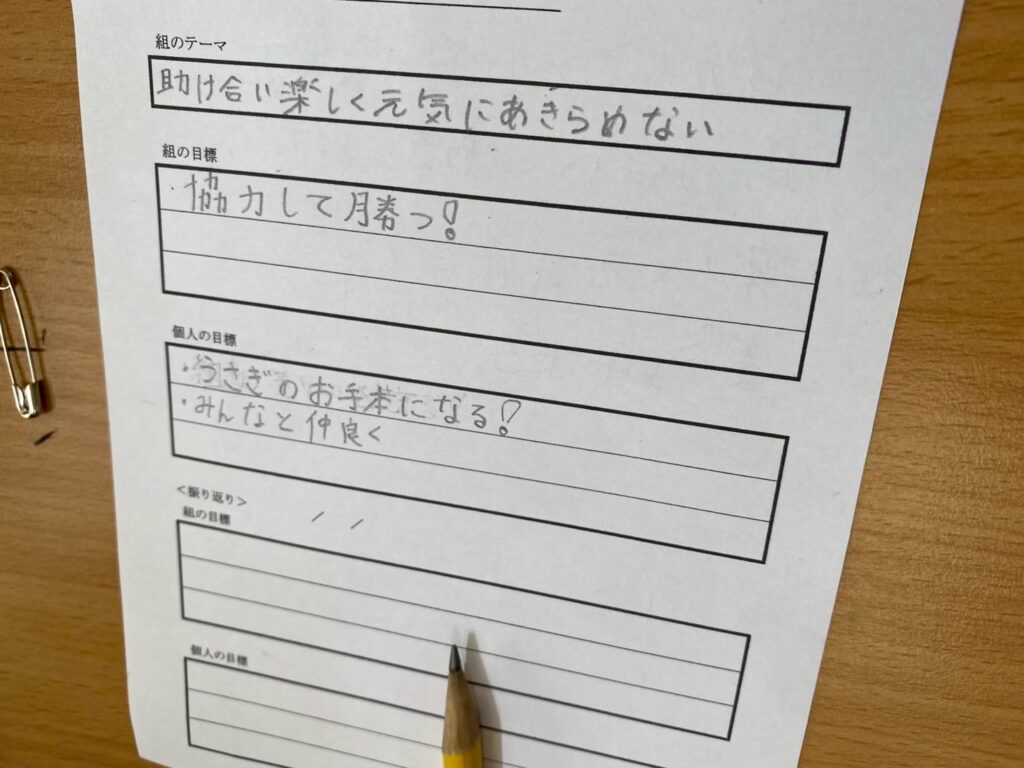 組のテーマ
助け合い楽しく元気にあきらめない
組の目標
・協力して勝つ!
個人の目標
・うさぎのお手本になる!
・みんなと仲良く
<振り返り>
組の目標
個人の目標